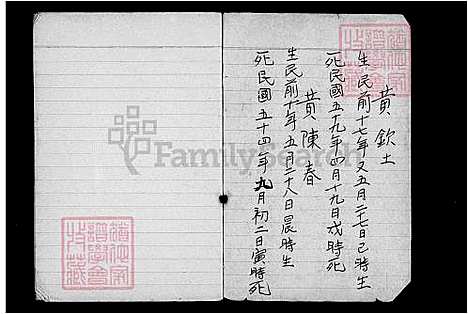 黃欽土
生民前十七年又五月二七日巳時生
死民國五十九年四月十九日戌時死
黃陳春
生民前十年五月二十八日晨時生
死民國五十四年九月初二日寅時死
FamilySearch